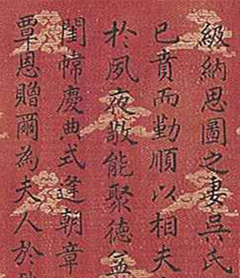 級納思圖之妻吳氏
已賁而勤順以相夫
於夙夜敬能聚德益
閨幃慶典式逢朝章
覃恩贈爾為夫人於